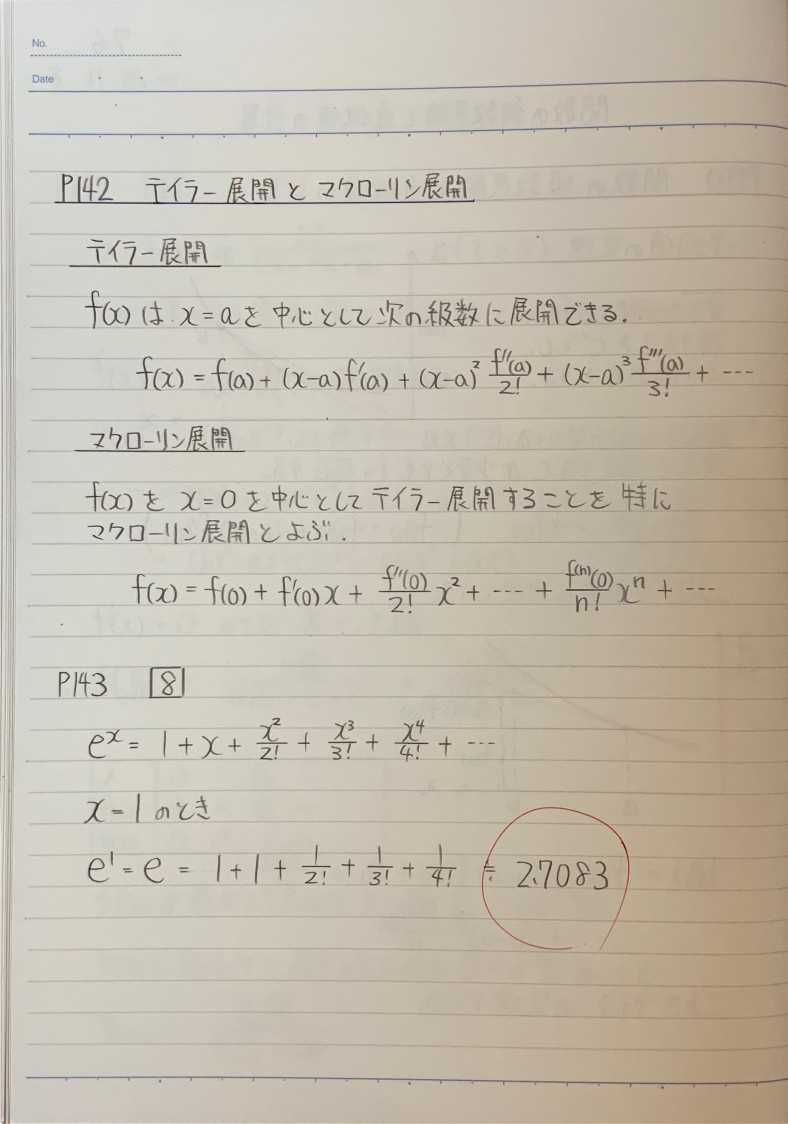 No.
Date
P142 テイラー展開とマクローリン展開
テイラー展開
f(x)は x=aを中心として次の級数に展開できる.
f(x) = f(a) + (x-a)f'(a) + (x-a)² f''(a)/2! + (x-a)³ f'''(a)/3! + ---
マクローリン展開
f(x)を x=0を中心としてテイラー展開することを特に
マクローリン展開とよぶ.
f(x) = f(0) + f'(0)x + f''(0)/2! x² + --- + f⁽ⁿ⁾(0)/n! xⁿ + ---
P143 8
eˣ = 1 + x + x²/2! + x³/3! + x⁴/4! + ---
x=1のとき
e¹ = e = 1 + 1 + 1/2! + 1/3! + 1/4! ≒ 2.7083